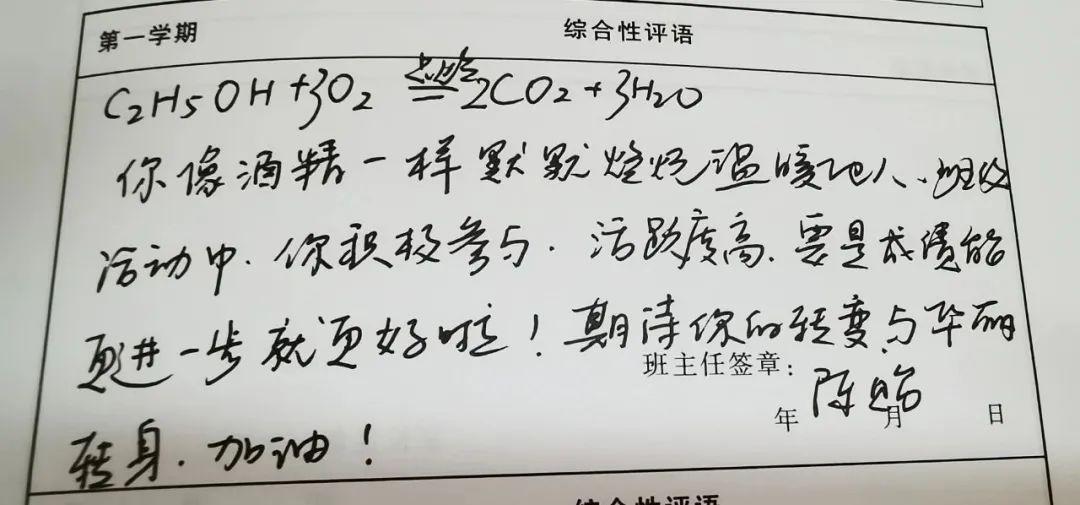 第一学期 综合性评语
C2H5OH+3O2 点燃═ 2CO2+3H2O
你像酒精一样默默燃烧温暖他人、班级
活动中、你积极参与、活跃度高、要是成绩能
更进一步就更好啦！期待你的转变与华丽
班主任签章：陈贻
年 月 日
转身、加油！
综合性评语